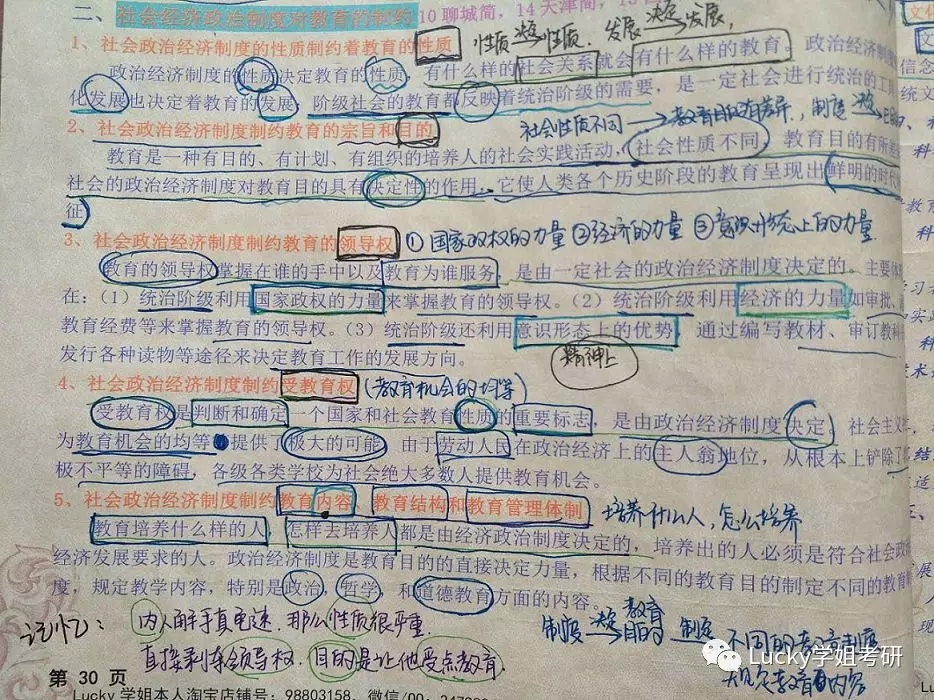 二、社会经济政治制度对教育的制约 10聊城简，14天津简，
性质 决定 性质。发展 决定 发展，
1、社会政治经济制度的性质制约着教育的性质
政治经济制度的性质决定教育的性质，有什么样的社会关系就会有什么样的教育。政治经济制度
化发展也决定着教育的发展。阶级社会的教育都反映着统治阶级的需要，是一定社会进行统治的工
社会性质不同→教育目的有差异，制度 决定 目的
2、社会政治经济制度制约教育的宗旨和目的
教育是一种有目的、有计划、有组织的培养人的社会实践活动，社会性质不同，教育目的有所
社会的政治经济制度对教育目的具有决定性的作用，它使人类各个历史阶段的教育呈现出鲜明的时代
征
3、社会政治经济制度制约教育的领导权 ①国家政权的力量 ②经济的力量 ③意识形态上的力量
教育的领导权掌握在谁的手中以及教育为谁服务，是由一定社会的政治经济制度决定的。主要
在：（1）统治阶级利用国家政权的力量来掌握教育的领导权。（2）统治阶级利用经济的力量如审批、
教育经费等来掌握教育的领导权。（3）统治阶级还利用意识形态上的优势，通过编写教材、审订教科
发行各种读物等途径来决定教育工作的发展方向。
精神上
4、社会政治经济制度制约受教育权（教育机会的均等）
受教育权是判断和确定一个国家和社会教育性质的重要标志，是由政治经济制度决定。社会主义
为教育机会的均等提供了极大的可能，由于劳动人民在政治经济上的主人翁地位，从根本上铲除了
极不平等的障碍，各级各类学校为社会绝大多数人提供教育机会。
5、社会政治经济制度制约教育内容、教育结构和教育管理体制 培养什么人，怎么培养
教育培养什么样的人、怎样去培养人都是由经济政治制度决定的，培养出的人必须是符合社会政
经济发展要求的人。政治经济制度是教育目的的直接决定力量，根据不同的教育目的制定不同的教育
度，规定教学内容，特别是政治、哲学、和道德教育方面的内容。
记忆：内人解手真电速，那么性质很严重，
直接剥夺领导权，目的是让他受点教育。
制度 决定 教育目的 制定 不同的教育制度
规定教育内容
第 30 页
Lucky学姐考研
Lucky 学姐本人淘宝店铺号：98803158，微信/QQ：